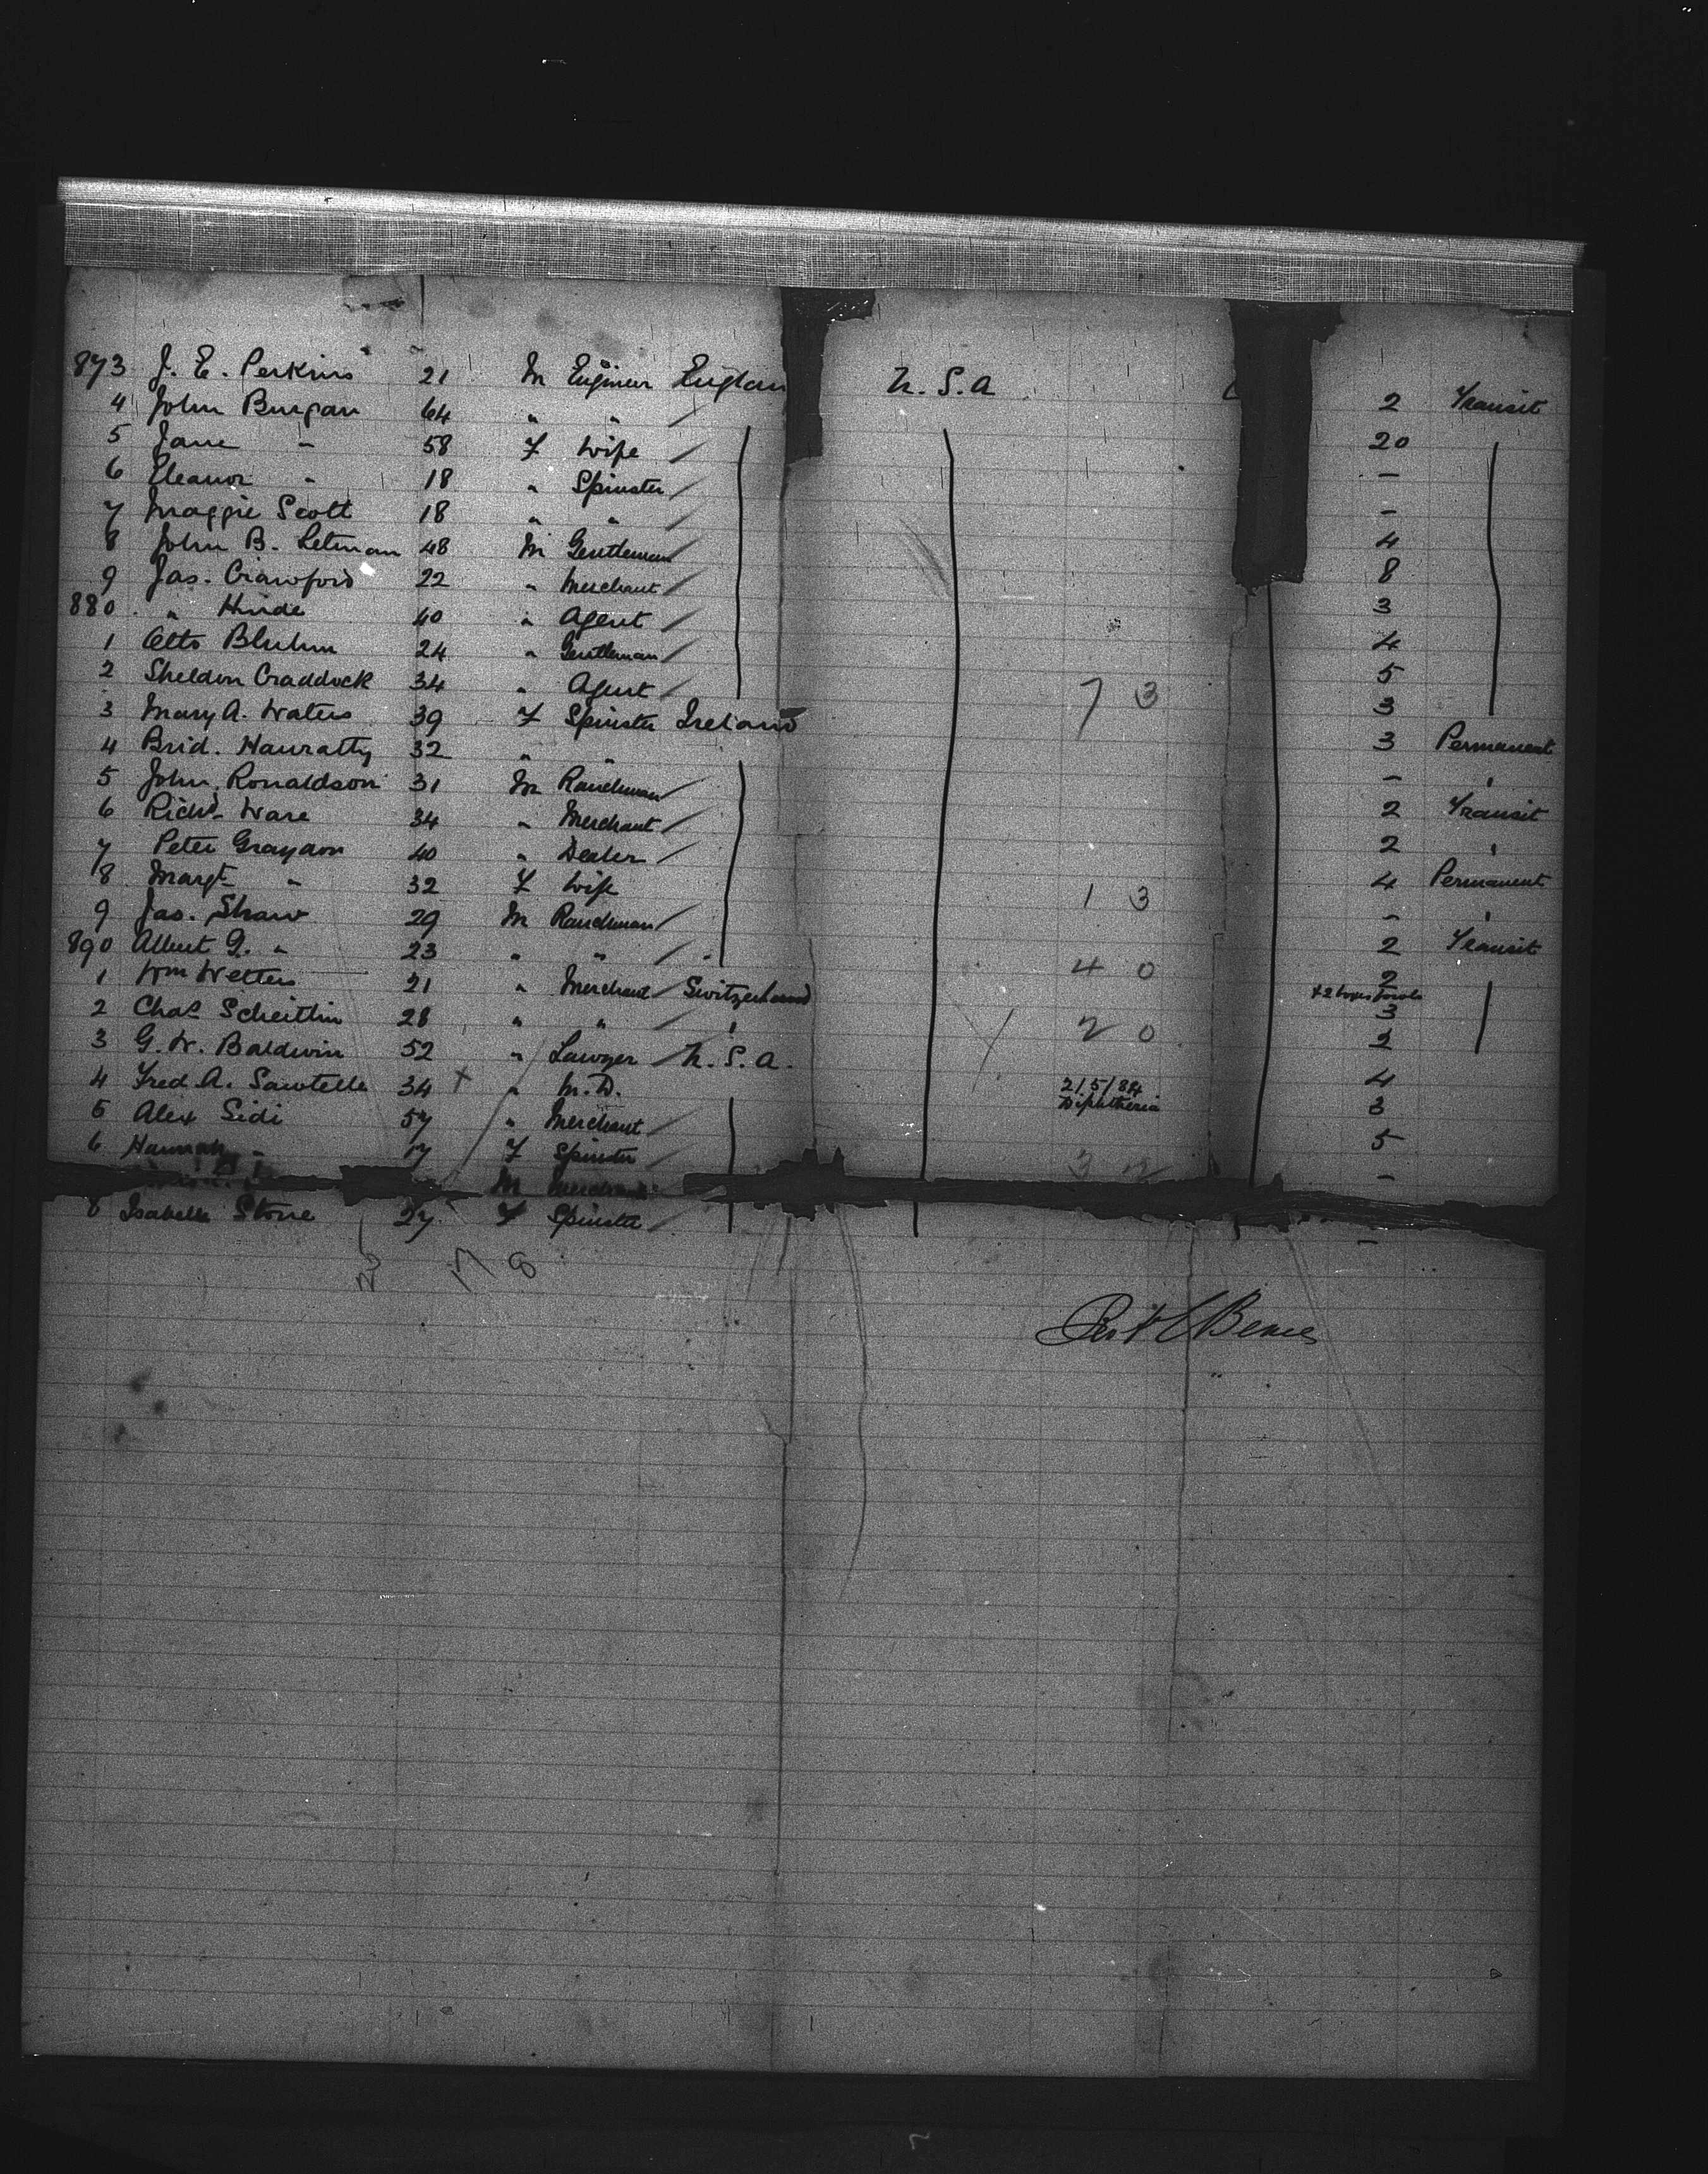 873 J. E. Perkins 21 M Engineer Englan U.S.A 2 Transit
4 John Burgan 64 " " 20
5 Jane " 58 F Wife -
6 Eleanor " 18 " Spinster -
7 Maggie Scott 18 " " 4
8 John B. Letman 48 M Gentleman 8
9 Jas. Crawford 22 " Merchant 3
880 " Hinde 40 " Agent 4
1 Otto Bluhm 24 " Gentleman 5
2 Sheldon Craddock 34 " Agent 7 3 3
3 Mary A. Waters 39 F Spinster Ireland 3 Permanent
4 Brid. Hanratty 32 " " - "
5 John Ronaldson 31 M Ranchman 2 Transit
6 Richd Ware 34 " Merchant 2 "
7 Peter Graydon 40 " Dealer 4 Permanent
8 Margt " 32 F Wife 1 3 - "
9 Jas. Shaw 29 M Ranchman 2 Transit
890 Albert G. " 23 " " 4 0 2
1 Wm Wetters 21 " Merchant Switzerland +2 boxes 3
2 Chas Scheitlin 28 " " " 2 0 2
3 G. W. Baldwin 52 " Lawyer U.S.A. 4
4 Fred A. Sawtelle 34 x " M.D. 21/5/84 Diphtheria 3
5 Alex Sidi 57 " Merchant 5
6 Hannah " 17 F Spinster 3 2 -
M Merchant
8 Isabella Stone 27 F Spinster -